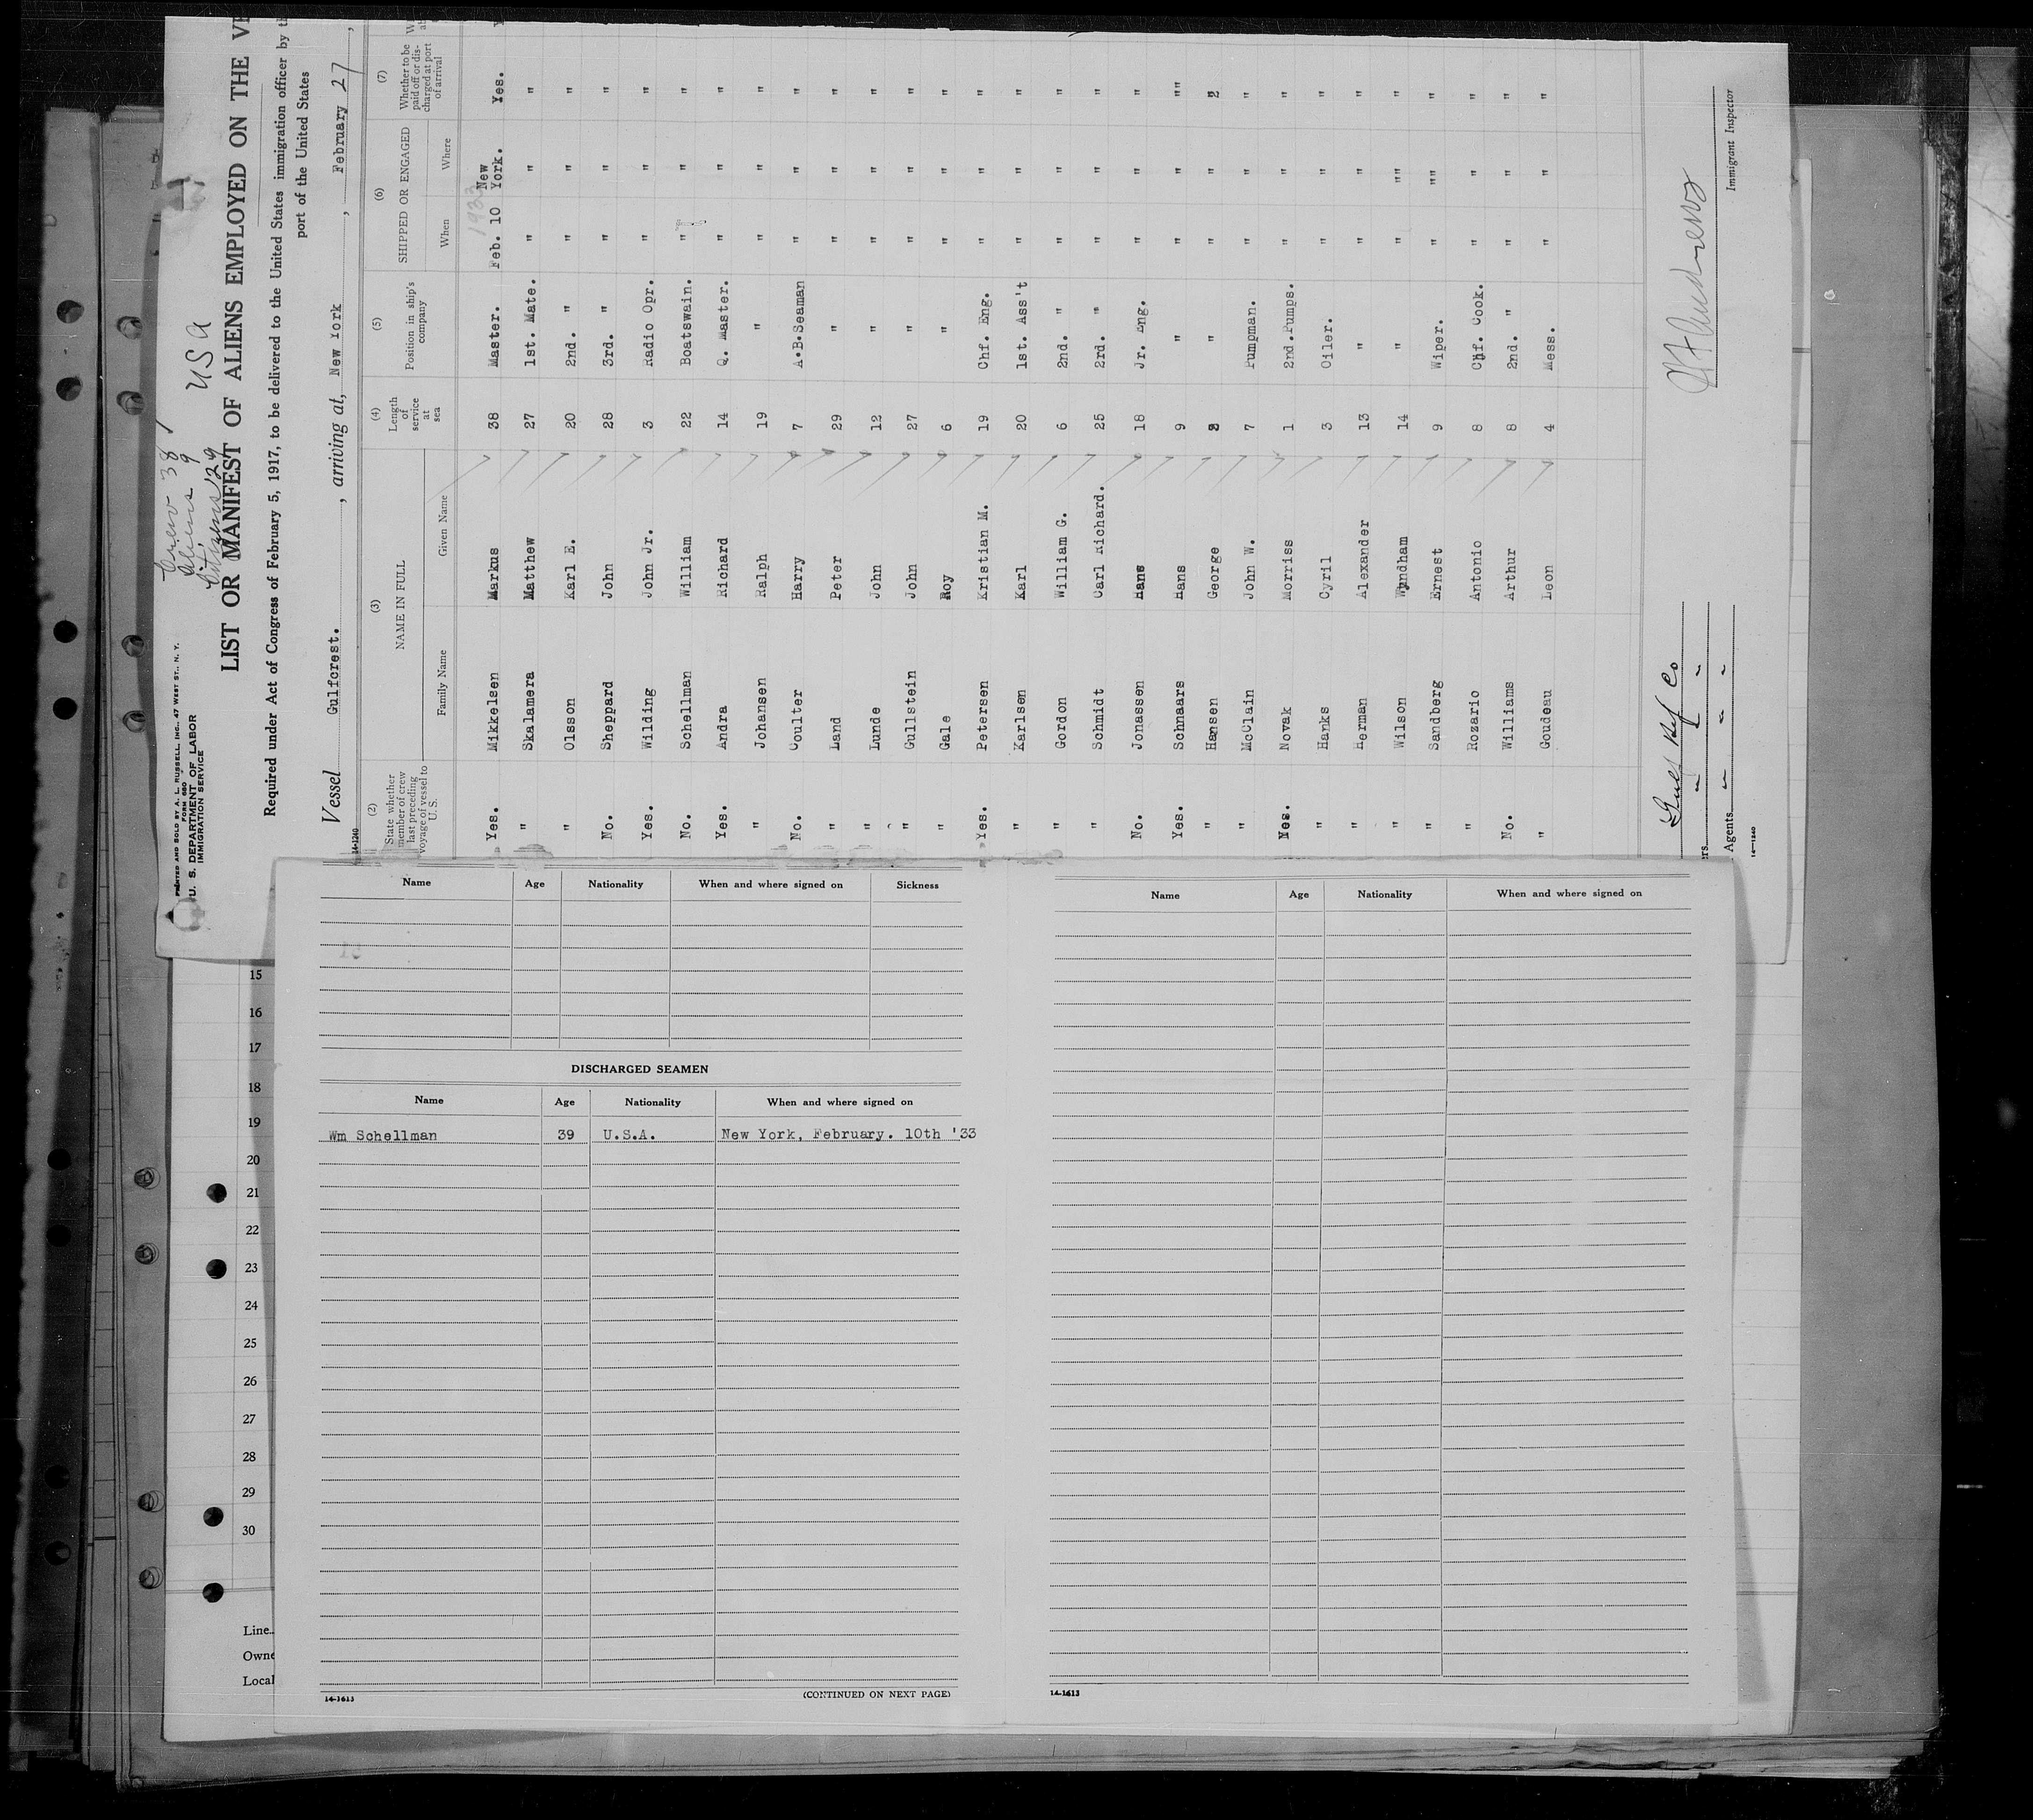 Crew 38
Aliens 9
Citizens 29
USA
PRINTED AND SOLD BY A. L. RUSSELL, INC., 47 WEST ST., N. Y.
FORM 680
U. S. DEPARTMENT OF LABOR
IMMIGRATION SERVICE
LIST OR MANIFEST OF ALIENS EMPLOYED ON THE VE
Required under Act of Congress of February 5, 1917, to be delivered to the United States immigration officer by th
port of the United States
Vessel Gulfcrest. , arriving at, New York , February 27 ,
14-1240
(2) (3) (4) (5) (6) (7)
State whether member of crew last preceding voyage of vessel to U.S. NAME IN FULL Length of service at sea Position in ship's company SHIPPED OR ENGAGED Whether to be paid off or discharged at port of arrival
Family Name Given Name When Where
1933
Yes. Mikkelsen Markus 38 Master. Feb. 10 New York. Yes.
" Skalamera Matthew 27 1st. Mate. " " "
" Olsson Karl E. 20 2nd. " " " "
No. Sheppard John 28 3rd. " " " "
Yes. Wilding John Jr. 3 Radio Opr. " " "
No. Schellman William 22 Boatswain. " " "
Yes. Andra Richard 14 Q. Master. " " "
" Johansen Ralph 19 " " " "
No. Coulter Harry 7 A.B.Seaman " " "
" Land Peter 29 " " " "
" Lunde John 12 " " " "
" Gullstein John 27 " " " "
" Gale Roy 6 " " " "
Yes. Petersen Kristian M. 19 Chf. Eng. " " "
" Karlsen Karl 20 1st. Ass't " " "
" Gordon William G. 6 2nd. " " " "
" Schmidt Carl Richard. 25 2rd. " " " "
No. Jonassen Hans 18 Jr. Eng. " " "
Yes. Schnaars Hans 9 " " " ""
" Hansen George " " "
" McClain John W. 7 Pumpman. " " "
Yes. Novak Morriss 1 2nd.Pumps. " " "
" Hanks Cyril 3 Oiler. " " "
" Herman Alexander 13 " " " "
" Wilson Wyndham 14 " " "" "
" Sandberg Ernest 9 Wiper. " "" "
" Rozario Antonio 8 Chf. Cook. " " "
No. Williams Arthur 8 2nd. " " " "
" Goudeau Leon 4 Mess. " " "
Gulf Ref Co
Agents
14-1240
Immigrant Inspector
Name Age Nationality When and where signed on Sickness
DISCHARGED SEAMEN
Name Age Nationality When and where signed on
Wm Schellman 39 U.S.A. New York, February. 10th '33
14-1613
(CONTINUED ON NEXT PAGE)
Name Age Nationality When and where signed on
14-1613
15
16
17
18
19
20
21
22
23
24
25
26
27
28
29
30
Line
Owne
Local